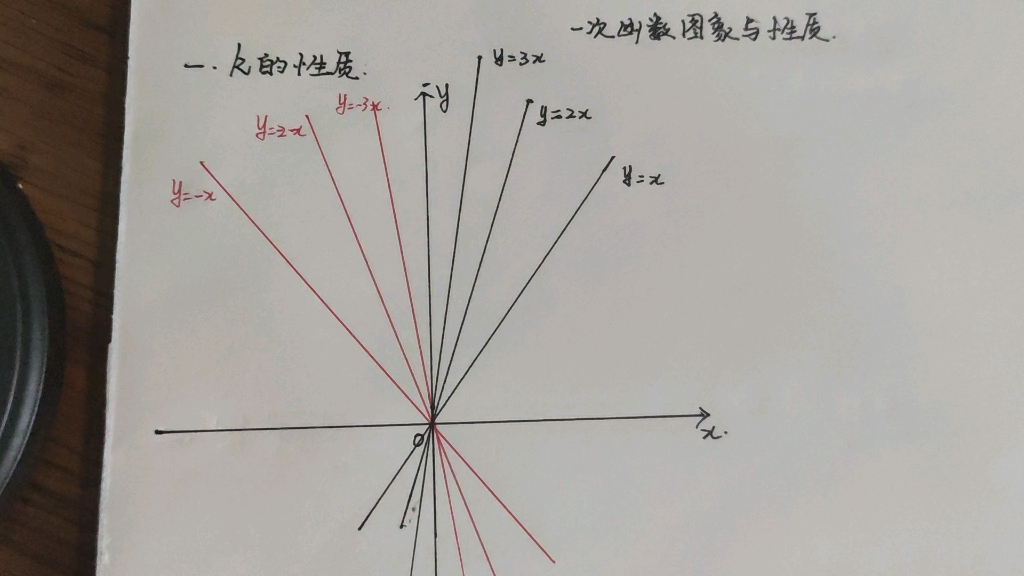 一次函数图象与性质.
一. k的性质.
y=3x
y=-3x.
y
y=2x
y=2x
y=x
y=-x
x.
O